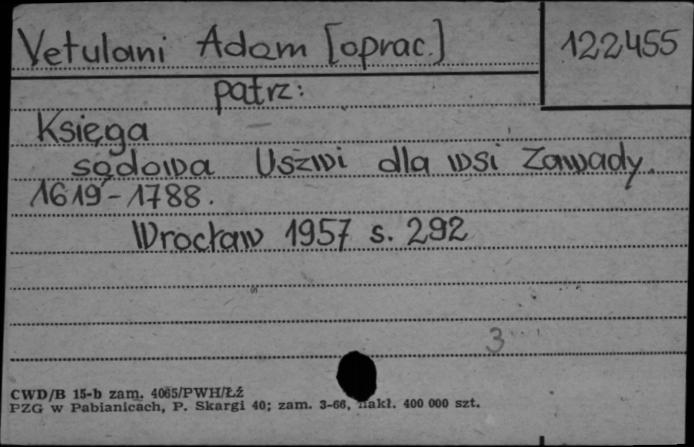 Vetulani Adam [oprac.]
122455
patrz:
Księga
sądowa Uszwi dla wsi Zawady.
1619-1788.
Wrocław 1957 s. 292
3
CWD/B 15-b zam. 4065/PWH/Łź
PZG w Pabianicach, P. Skargi 40; zam. 3-66, nakł. 400 000 szt.